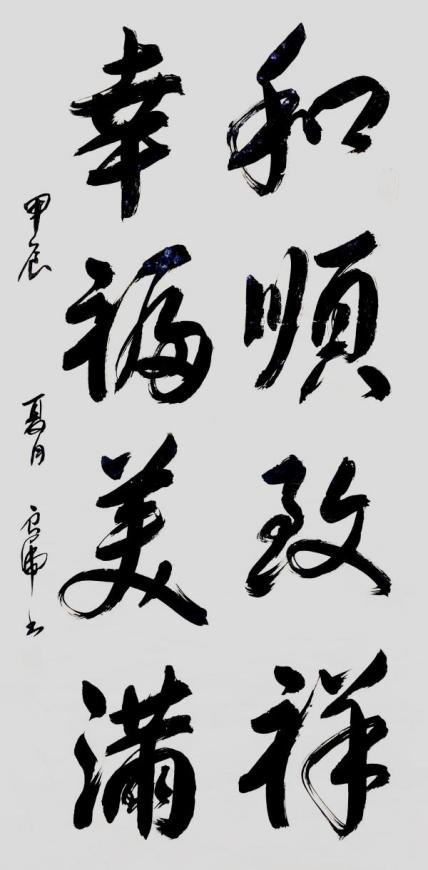 和順致祥
幸福美滿
甲辰
夏月
書